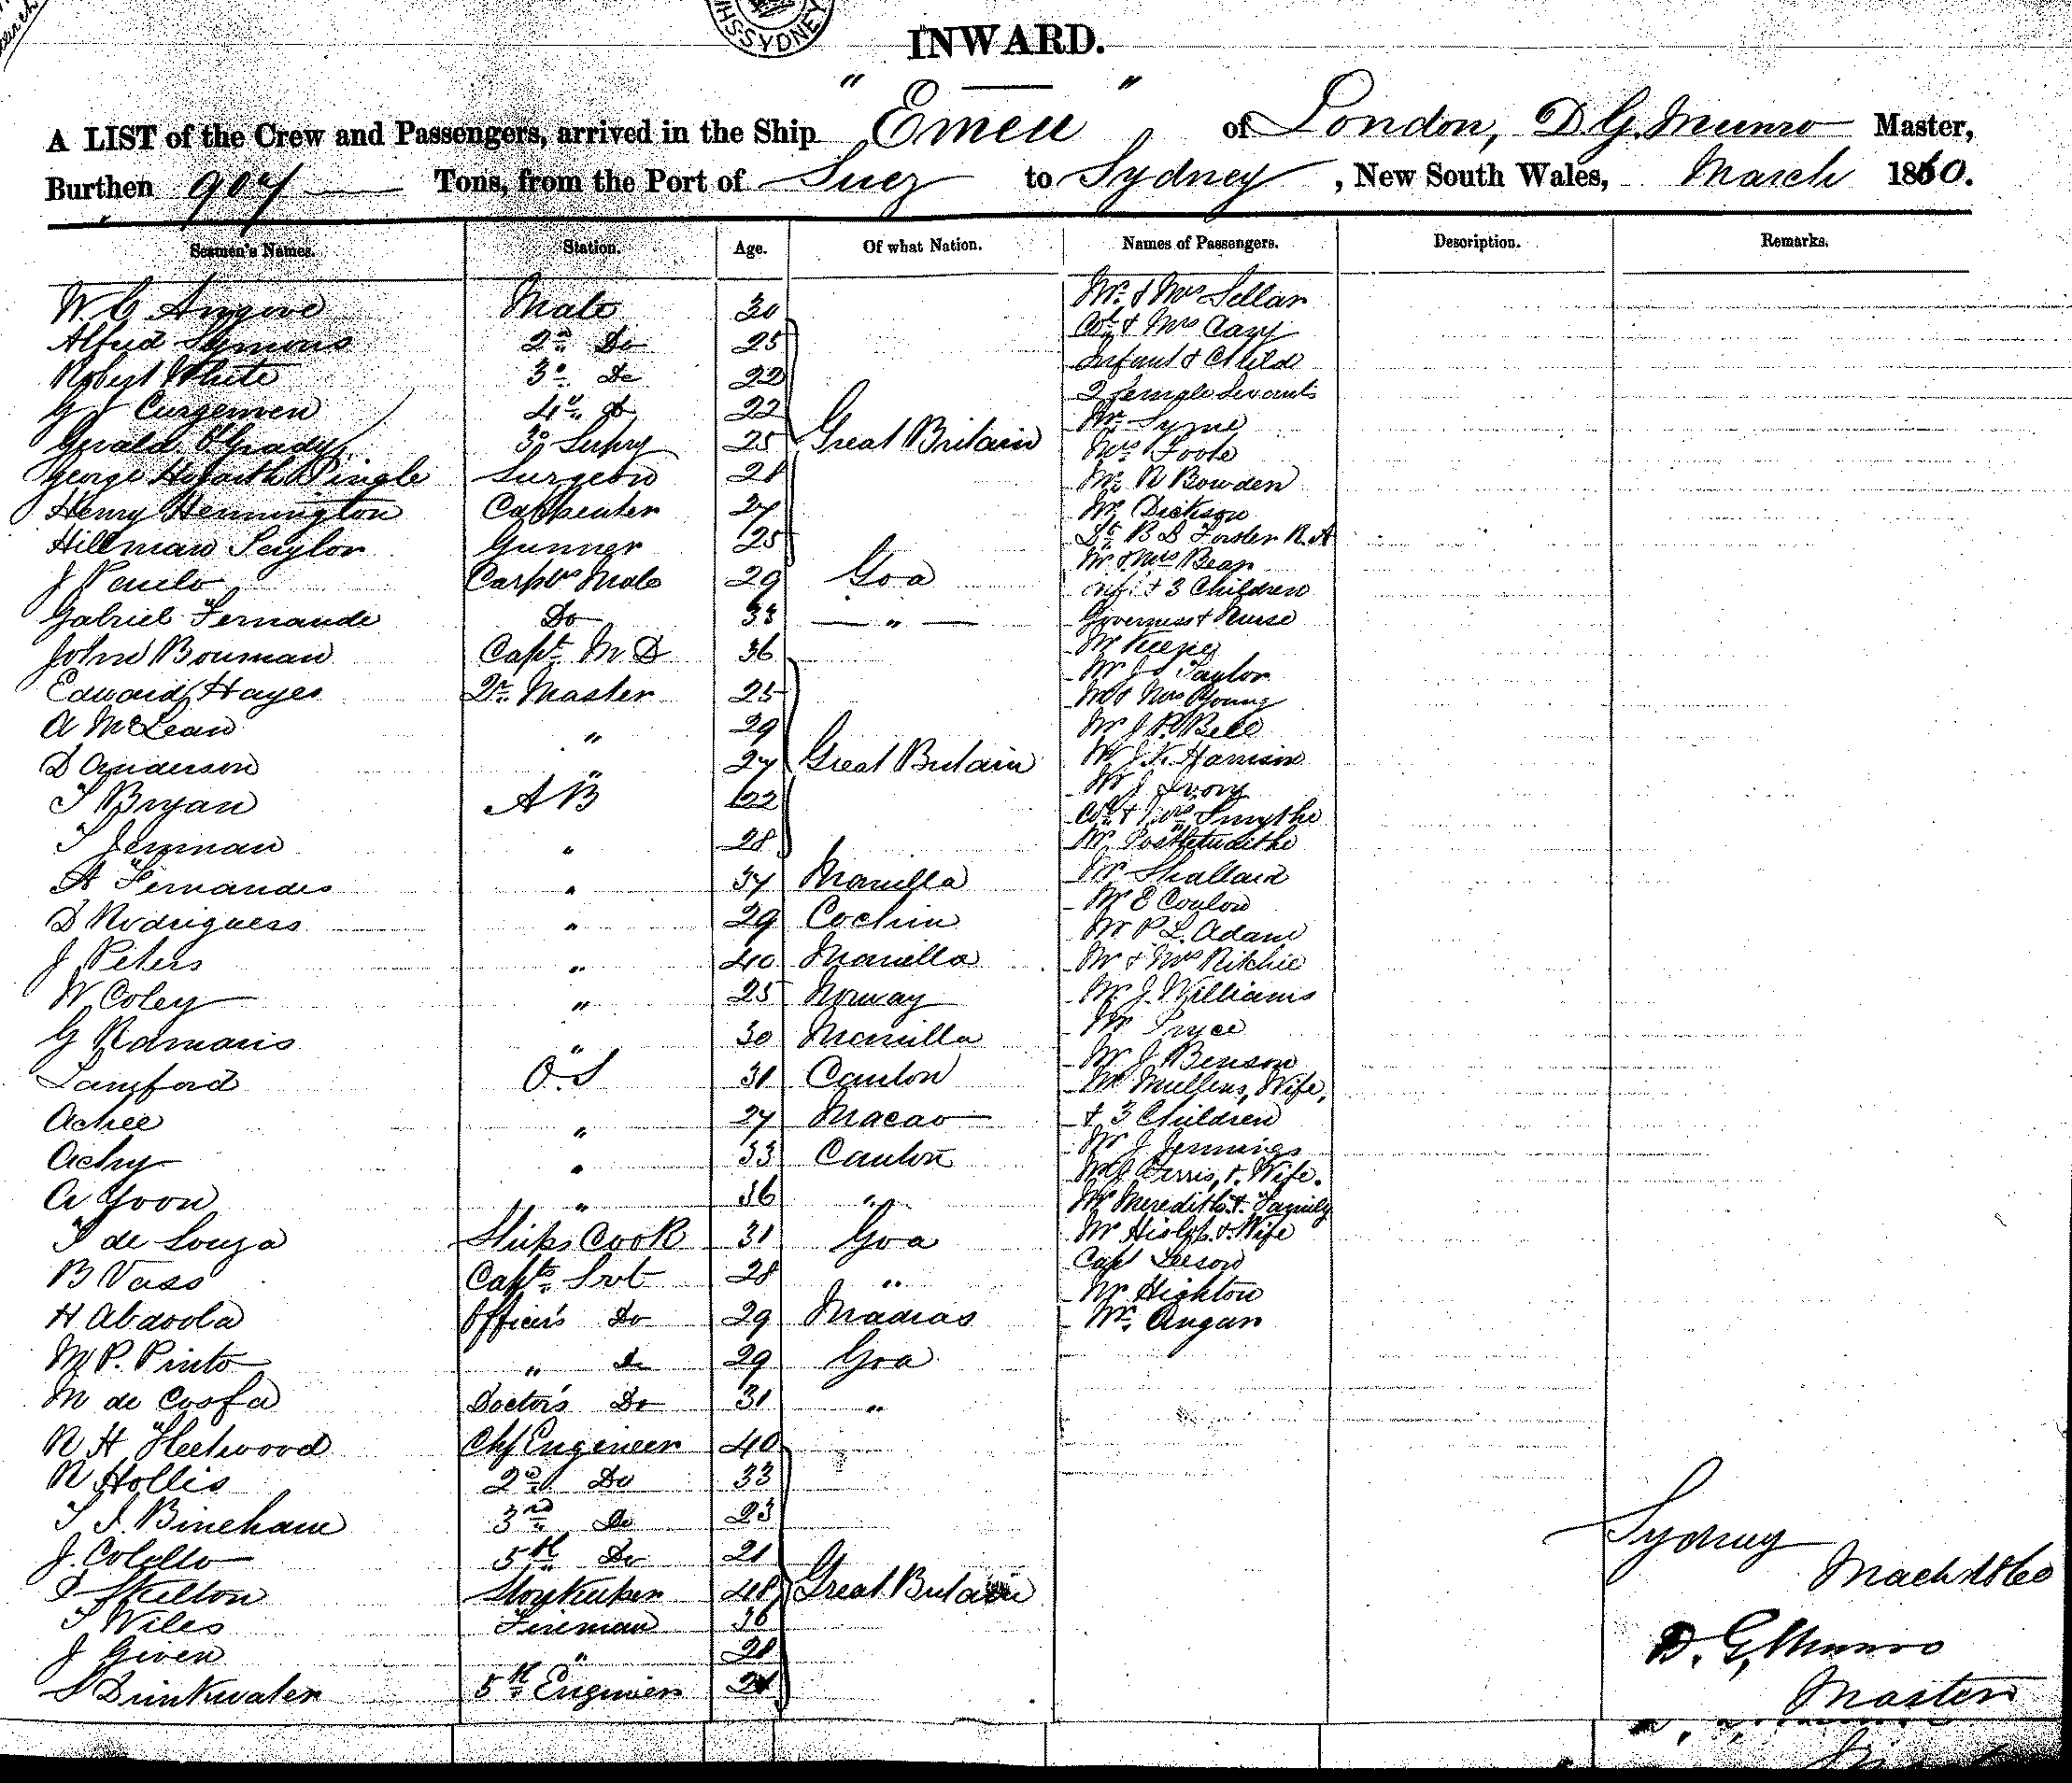 SYDNEY
INWARD.
A LIST of the Crew and Passengers, arrived in the Ship "Emeu" of London, D G Munro Master,
Burthen 907 Tons, from the Port of Suez to Sydney, New South Wales, March 1860.
Seamen's Names. Station. Age. Of what Nation. Names of Passengers. Description. Remarks.
W C Angove Mate 30
Alfred Symons 2nd Do 25
Robert White 3d Do 22
G Curgenven 4th Do 22
Gerald O'Grady 3d 25 Great Britain
George Hogarth Pringle Surgeon 28
Henry Hennington Carpenter 27
Hillman Saylor Gunner 25
J Paulo Carptrs Mate 29 Goa
Gabriel Fernande Do 33 — " —
John Bouman Capt M D 36
Edward Hayes Qr Master 25
A McLean " 29
D Anderson " 27 Great Britain
T Bryan A B 22
T Jerman " 28
A Fernandes " 37 Manilla
D Rodriguess " 29 Cochin
J Peters " 40 Manilla
W Coley " 25 Norway
G Romanis " 30 Manilla
Langford O.S 31 Canton
Achee " 27 Macao
Achy " 33 Canton
A Yoon " 36 "
T de Souza Ships Cook 31 Goa
B Vass Capts Svt 28 "
H Abdoola Officer's Do 29 Madras
M P. Pinto " Do 29 Goa
M de Costa Doctor's Do 31 "
R H Fleetwood Chf Engineer 40
R Hollis 2d Do 33
T J. Bineham 3rd Do 23
J. Colello 5th Do 21
Skelton Storekeeper 48 Great Britain
T Wiles Fireman 36
J Given " 28
S Drinkwater 5th Engineer 21
Mr & Mrs Sellar
Col & Mrs Cary
Infant & Child
2 female Servants
Mr Syme
Mrs Foote
Mr R Bowden
Mr Dickson
Lt B S Forster R.A
Mr & Mrs Bean
inft & 3 Children
Governess & Nurse
Mr Keene
Mr J S Taylor
Mr & Mrs Young
Mr J P. Bell
Mr J. N. Harrison
Mr J Ivory
Col & Mrs Smythe
Mr Postletwaithe
Mr Shallard
Mr E Coulon
Mr P L. Adam
Mr & Mrs Ritchie
Mr J. Williams
Mr Pryce
Mr J Benson
Mr Mullens, Wife,
& 3 Children
Mr J Jennings
Mr J Ferris, & Wife.
Mr Meredith & Family
Mr Hislop & Wife
Capt Leeson
Mr Highton
Mr Angar
Sydney
D. G. Munro
Master